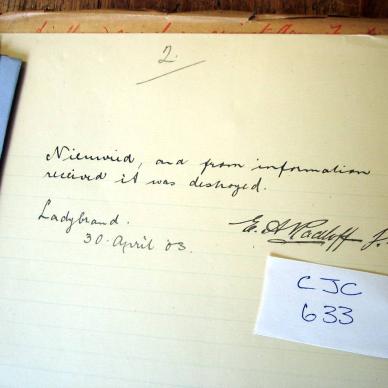 2.
Nieuwied, and from information
received it was destroyed.
Ladybrand.
30. April 03.
E. A. Radloff J.
CJC
633